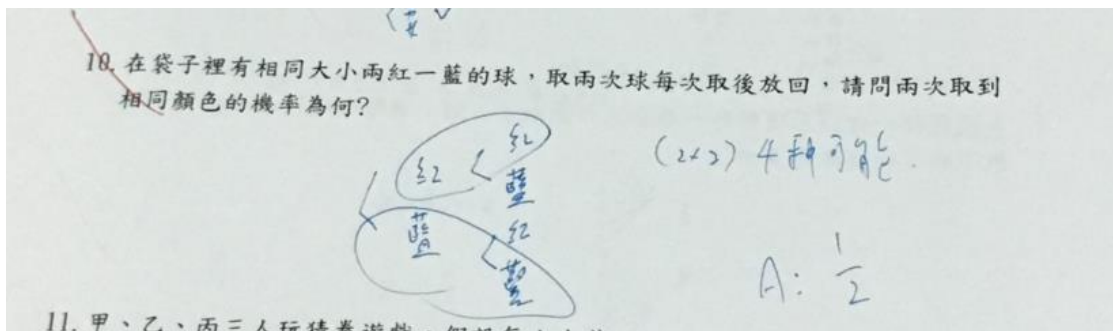 10. 在袋子裡有相同大小兩紅一藍的球，取兩次球每次取後放回，請問兩次取到
相同顏色的機率為何?
紅
紅
藍
藍
紅
藍
(2×2) 4種可能.
A: 1/2
11. 甲、乙、丙三人玩猜拳遊戲，